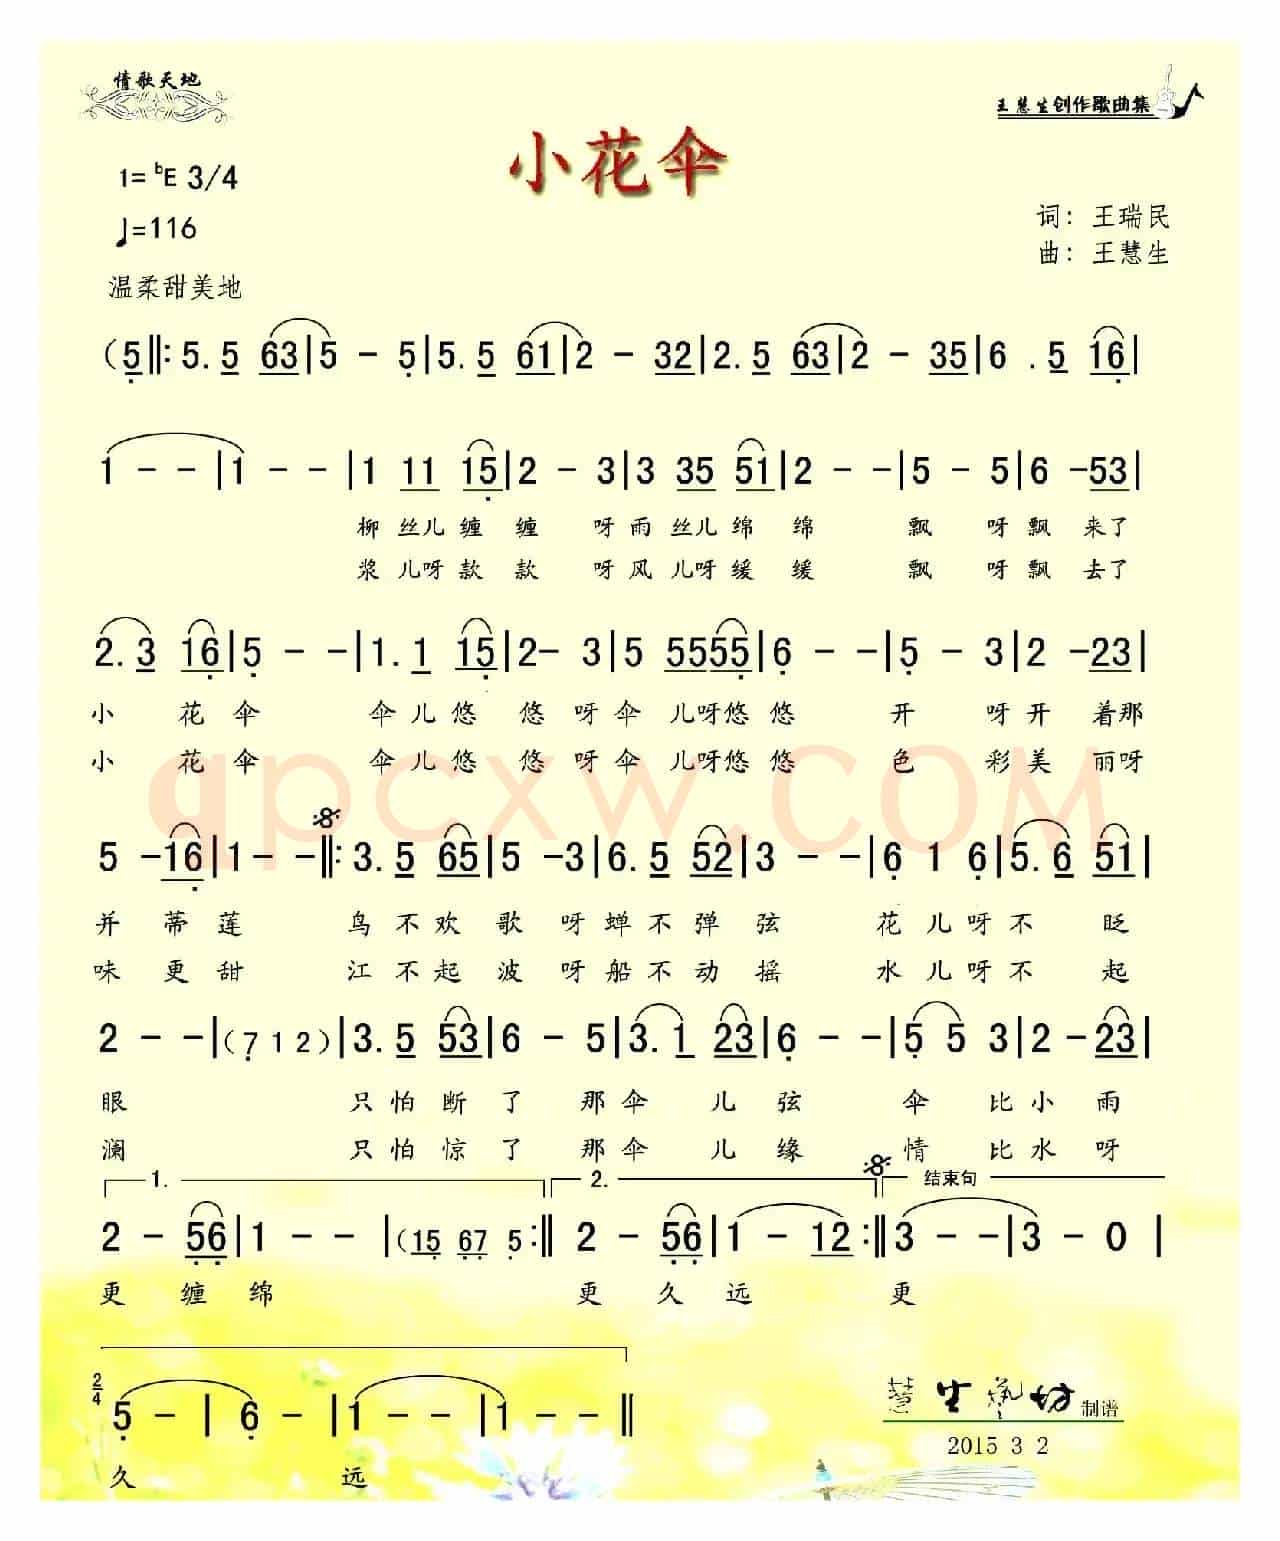 情歌天地
王慧生创作歌曲集
小花伞
1= ᵇE 3/4
♩=116
词：王瑞民
曲：王慧生
温柔甜美地
(5̣‖: 5. 5 63|5 - 5̣|5. 5 61|2 - 32|2. 5 63|2 - 35|6 . 5 16̣|
1 - -|1 - -|1 11 15̣|2 - 3|3 35 51|2 - -|5 - 5|6 -53|
柳 丝儿 缠 缠 呀 雨 丝儿 绵 绵 飘 呀 飘 来了
浆 儿呀 款 款 呀 风 儿呀 缓 缓 飘 呀 飘 去了
2. 3 16̣|5̣ - -|1. 1 15̣|2- 3|5 5555̣|6̣ - -|5̣ - 3|2 -23|
小 花 伞 伞 儿 悠 悠 呀 伞 儿呀悠 悠 开 呀 开 着那
小 花 伞 伞 儿 悠 悠 呀 伞 儿呀悠 悠 色 彩 美 丽呀
qpcxw.COM
5 -16̣|1- -‖: 3. 5 65|5 -3|6. 5 52|3 - -|6̣ 1 6̣|5̣. 6̣ 51|
并 蒂 莲 鸟 不 欢 歌 呀 蝉 不 弹 弦 花 儿 呀 不 眨
味 更 甜 江 不 起 波 呀 船 不 动 摇 水 儿 呀 不 起
2 - -|(7̣ 1 2)|3. 5 53|6 - 5|3. 1 23|6̣ - -|5̣ 5 3|2 -23|
眼 只 怕 断 了 那 伞 儿 弦 伞 比 小 雨
澜 只 怕 惊 了 那 伞 儿 缘 情 比 水 呀
1. 2. 结束句
2 - 5̣6̣|1 - -|(15̣ 6̣7̣ 5̣:‖ 2 - 5̣6̣|1 - 12:‖3 - -|3 - 0|
更 缠 绵 更 久 远 更
2/4
5̣ -|6̣ -|1 -|1 -‖
久 远
慧生艺坊 制谱
2015 3 2